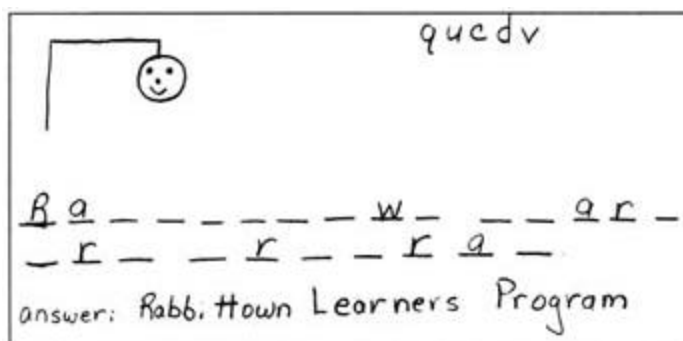 qucdv
R a _ _ _ _ _ _ _ w _ _ _ a r _
_ r _ _ r _ _ r a _
answer: Rabbittown Learners Program